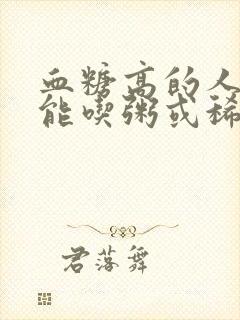 血糖高的人
能喫粥或稀
君落舞